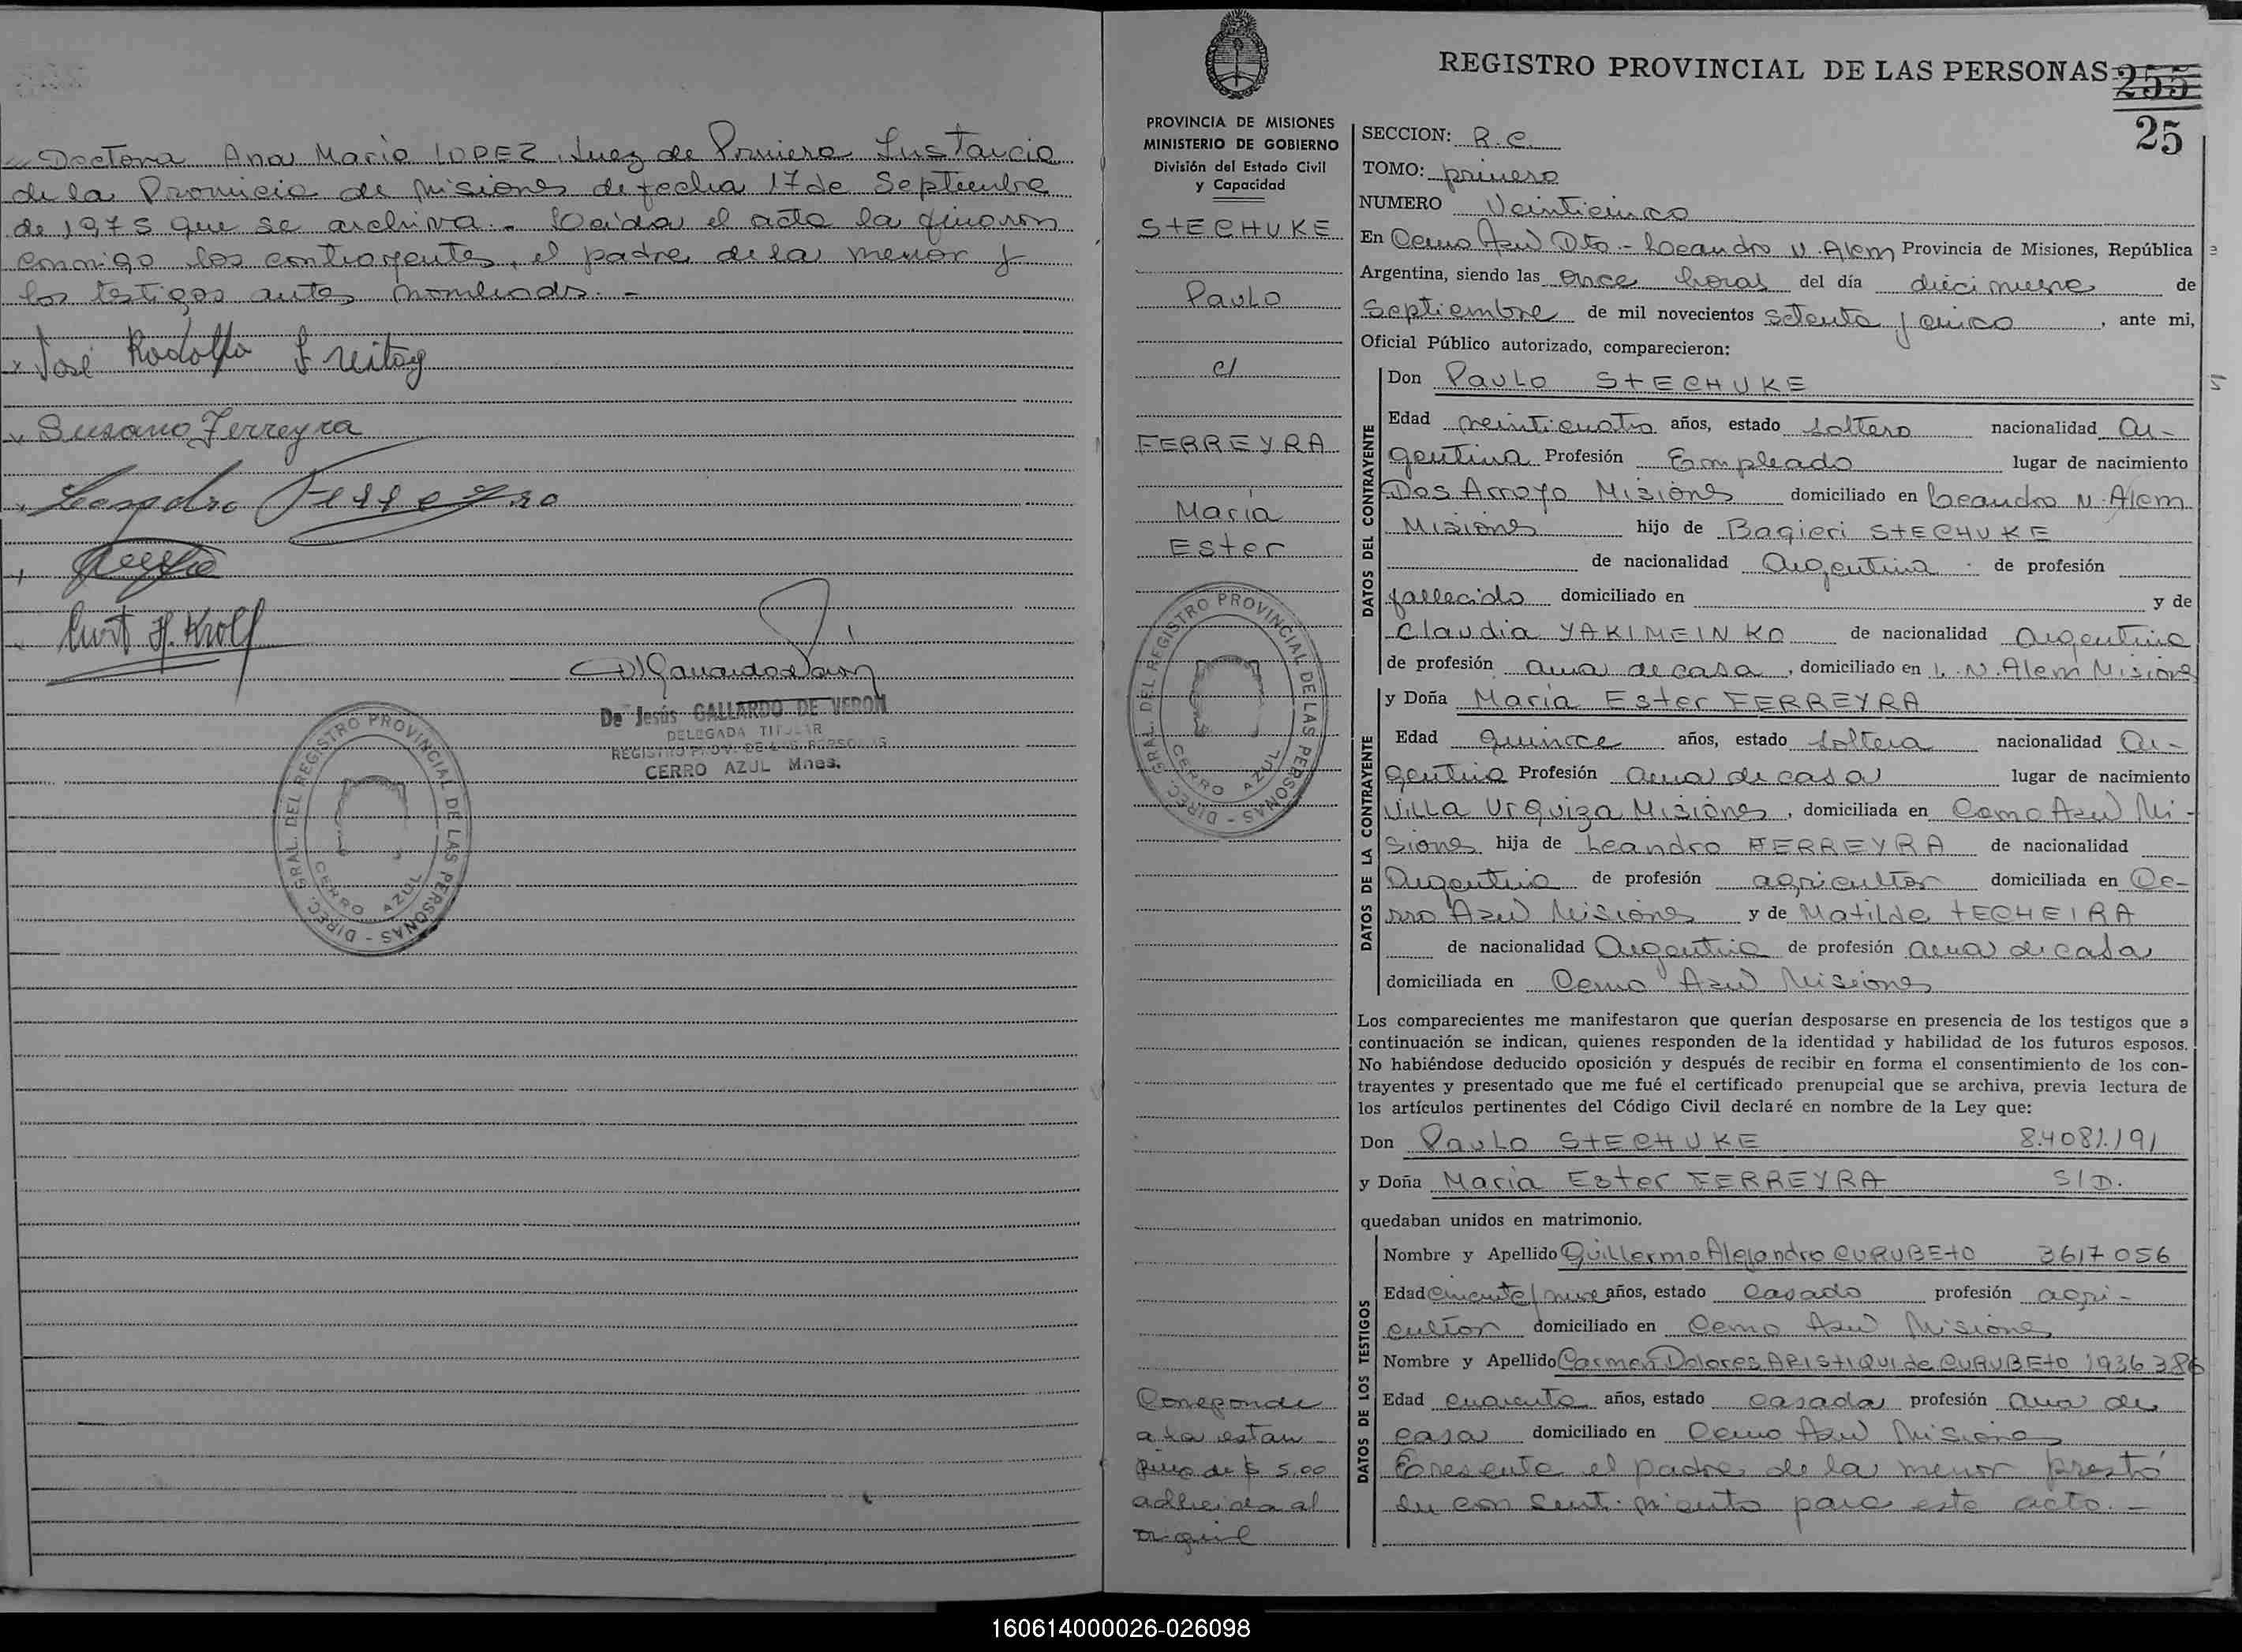 Doctora Ana Maria LOPEZ, Juez de Primera Instancia
de la Provincia de Misiones de fecha 17 de Septiembre
de 1975 que se archiva.- Leida el acta la firaron
conmigo los contrayentes, el padre de la menor y
los testigos antes nombrados.-
José Rodolfo Freitag
Susana Ferreyra
Leandro Ferreyra
Curt H. Kroll
De Jesús GALLARDO DE VERON
DELEGADA TITULAR
REGISTRO PROV. DE LAS PERSONAS
CERRO AZUL Mnes.
DIREC. GRAL. DEL REGISTRO PROVINCIAL DE LAS PERSONAS -
CERRO AZUL
REGISTRO PROVINCIAL DE LAS PERSONAS 255
25
PROVINCIA DE MISIONES
MINISTERIO DE GOBIERNO
División del Estado Civil
y Capacidad
STECHUKE
Paulo
c/
FERREYRA
María
Ester
DIREC. GRAL. DEL REGISTRO PROVINCIAL DE LAS PERSONAS -
CERRO AZUL
Corresponde
a la estam-
pilla de $ 5.00
adherida al
SECCION: R.C.
TOMO: primero
NUMERO Veinticinco
En Cerro Azul Dto - Leandro N. Alem Provincia de Misiones, República
Argentina, siendo las once horas del día diecinueve de
Septiembre de mil novecientos setenta y cinco, ante mi,
Oficial Público autorizado, comparecieron:
DATOS DEL CONTRAYENTE
Don Paulo STECHUKE
Edad veinticuatro años, estado soltero nacionalidad Ar-
gentina Profesión Empleado lugar de nacimiento
Dos Arroyo Misiones domiciliado en Leandro N. Alem
Misiones hijo de Bagieri STECHUKE
de nacionalidad Argentina de profesión
fallecido domiciliado en y de
Claudia YAKIMEINKO de nacionalidad Argentina
de profesión ama de casa, domiciliado en L. N. Alem Misiones
DATOS DE LA CONTRAYENTE
y Doña María Ester FERREYRA
Edad quince años, estado soltera nacionalidad Ar-
gentina Profesión ama de casa lugar de nacimiento
Villa Urquiza Misiones, domiciliada en Cerro Azul Mi-
siones hija de Leandro FERREYRA de nacionalidad
Argentina de profesión agricultor domiciliada en Ce-
rro Azul Misiones y de Matilde TECHEIRA
de nacionalidad Argentina de profesión ama de casa
domiciliada en Cerro Azul Misiones
Los comparecientes me manifestaron que querían desposarse en presencia de los testigos que a
continuación se indican, quienes responden de la identidad y habilidad de los futuros esposos.
No habiéndose deducido oposición y después de recibir en forma el consentimiento de los con-
trayentes y presentado que me fué el certificado prenupcial que se archiva, previa lectura de
los artículos pertinentes del Código Civil declaré en nombre de la Ley que:
Don Paulo STECHUKE 8.408.191
y Doña María Ester FERREYRA S/D.
quedaban unidos en matrimonio.
DATOS DE LOS TESTIGOS
Nombre y Apellido Guillermo Alejandro CURUBETO 3617056
Edad cincuenta y nueve años, estado casado profesión agri-
cultor domiciliado en Cerro Azul Misiones
Nombre y Apellido Carmen Dolores ARISTIQUI de CURUBETO 1936386
Edad cuarenta años, estado casada profesión ama de
casa domiciliado en Cerro Azul Misiones
Presente el padre de la menor prestó
su consentimiento para este acto.-
160614000026-026098